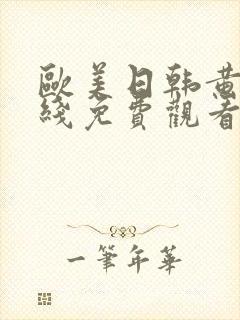 歐美日韩黄
綫免費觀看
一筆年華